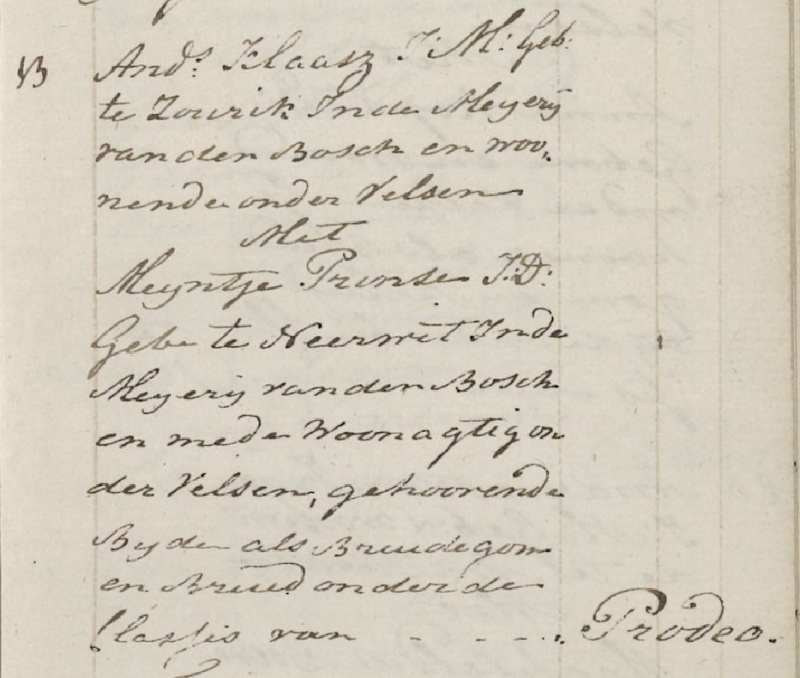 13 And:s Klaasz J: M: Geb:
te Zourik In de Meyerij
van den Bosch en woo,
nende onder Velsen
Met
Meyntje Prinse J:D:
Gebe te Neerwit In de
Meyerij van den Bosch
en mede Woonagtig on
der Velsen, gehoorende
Byde als Bruudegom
en Bruud onder de
Classis van - - - -. Prodeo.